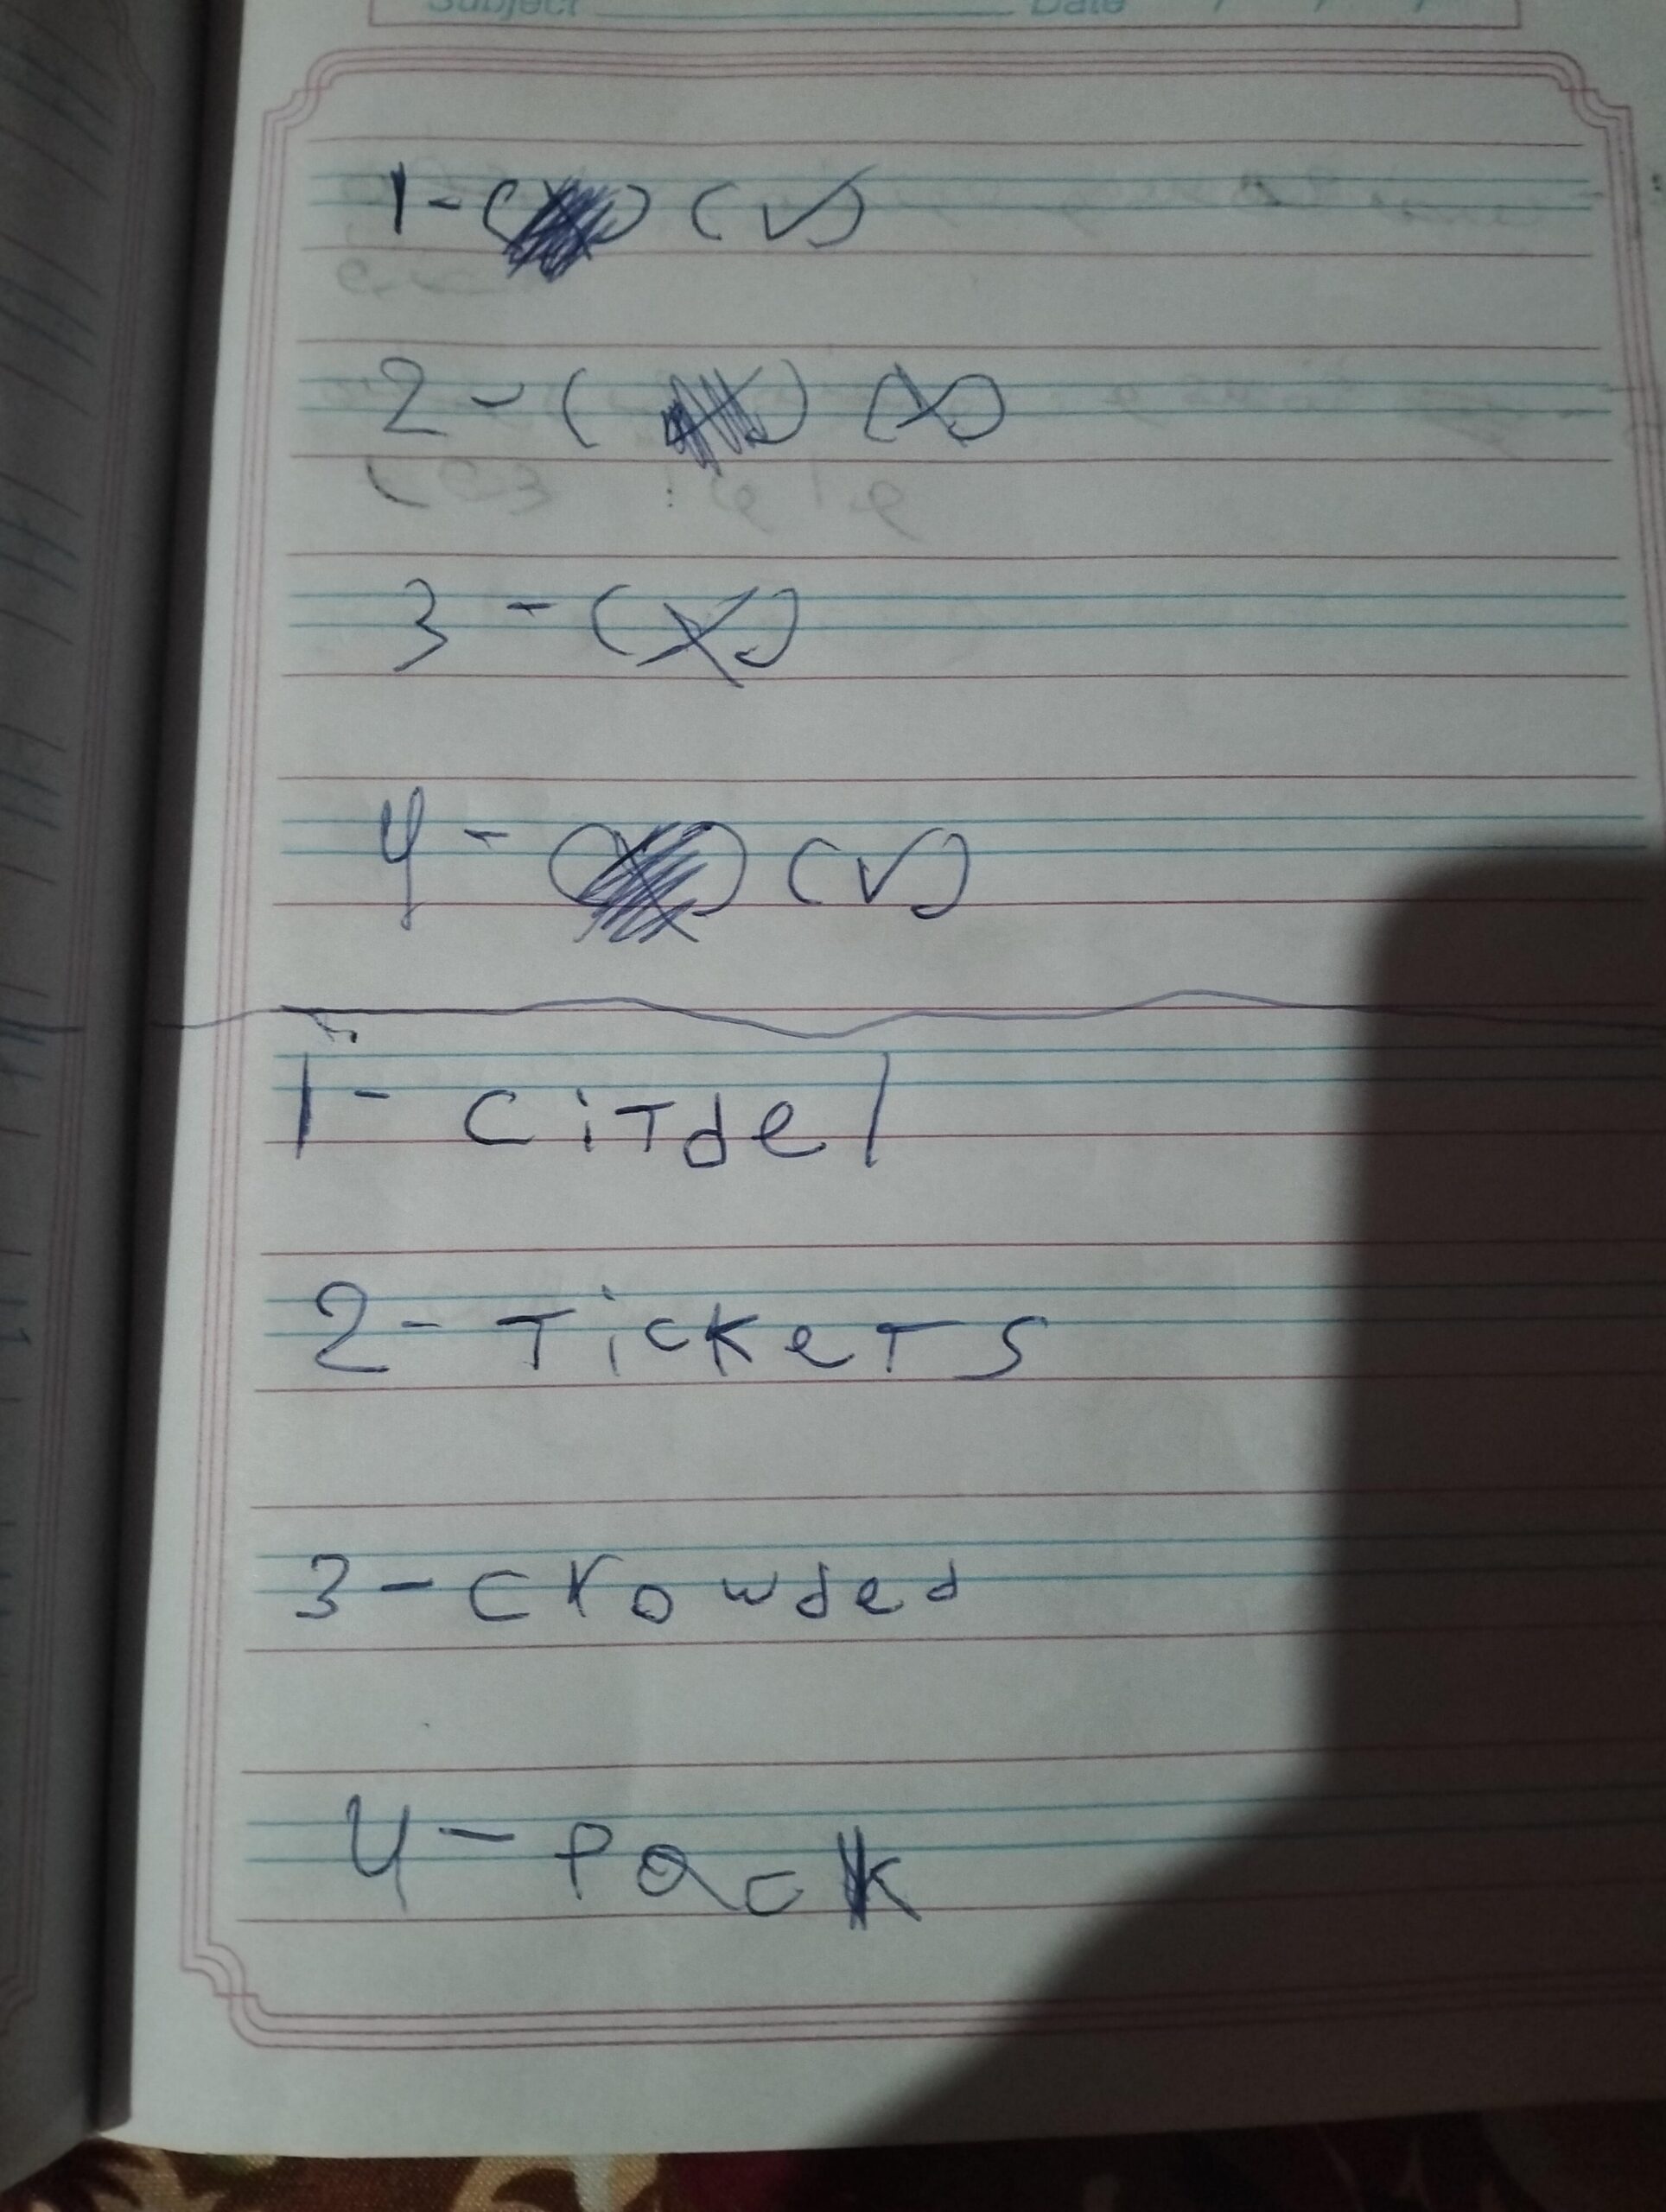 Subject Date / / /
1- ( ) (✓)
2 - ( ) (×)
3 - (×)
4 - ( ) (✓)
1- citdel
2- Tickets
3- crowded
4- Pack